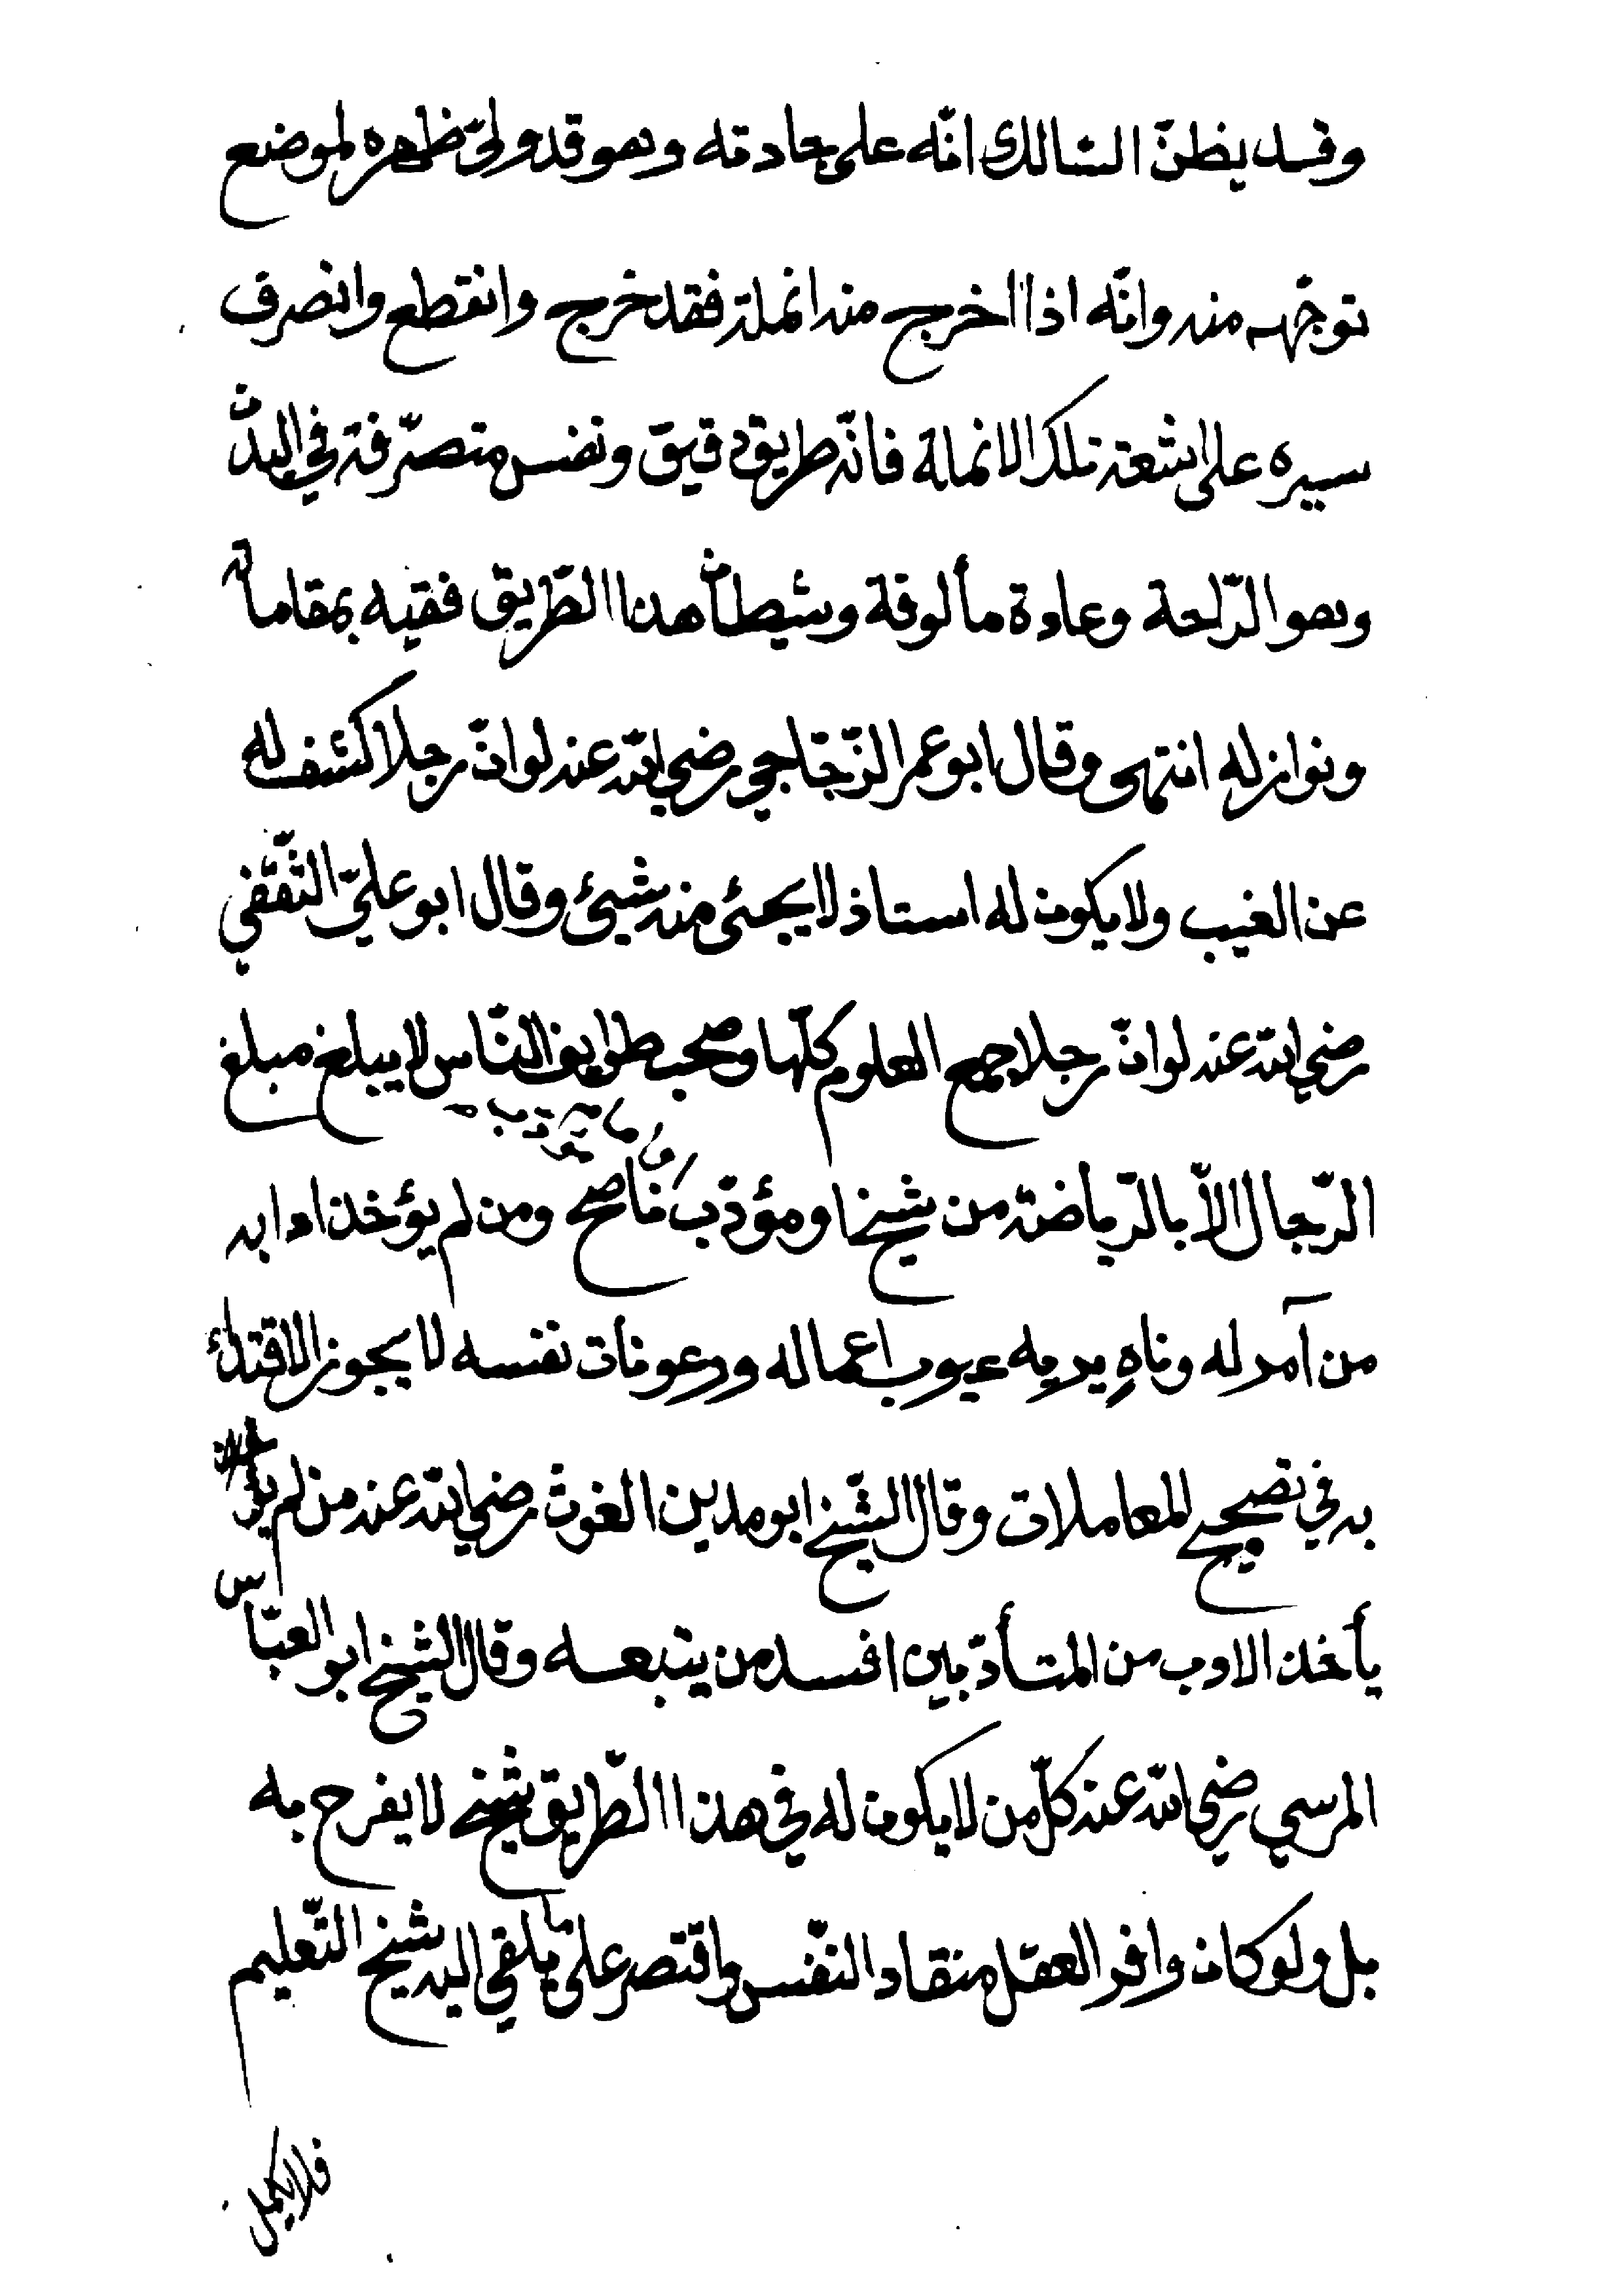 وقد يظنّ السّالك انّه على جادته وهو قد ولّى ظهره لموضع
توجّهه منه وانّه اذا اخرج منه انملة فقد خرج وانقطع وانصرف
سيره على اشعة تلك الانملة فانّه طريق دقيق ونفس متصرّفة في البدن
وهو الرّاحة وعادة مألوفة وشيطان هذا الطّريق فقيه بمقاماته
ونوازله انتهى وقال ابو عمر الزّجّاجي رضي الله عنه لو انّ رجلا كشف له
عن الغيب ولا يكون له استاذ لا يجئى منه شيئ وقال ابو علىّ الثّقفي
رضي الله عنه لو انّ رجلا جمع العلوم كلّها وصحب طوايف النّاس لا يبلغ مبلغ
الرّجال الاّ بالرّياضة من شيخ او مؤدّب ناصح ومن لم يؤخذ ادابه
من آمر له وناهٍ يريه عيوب اعماله ورعونات نفسه لا يجوز الاقتداء
به في تصحيح المعاملات وقال الشّيخ ابو مدين الغوث رضي الله عنه من لم
يأخذ الادب من المتأدّبين افسد من يتبعه وقال الشيخ ابو العبّاس
المرسي رضي الله عنه كلّ من لا يكون له في هذا الطّريق شيخ لا يفرح به
بل ولو كان وافر العقل منقاد النّفس واقتصر على ما يلقي اليه شيخ التّعليم
فلا يكمل